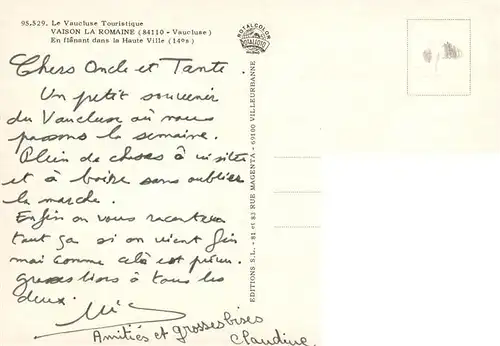 95.529. Le Vaucluse Touristique
VAISON LA ROMAINE (84110 - Vaucluse)
En flânant dans la Haute Ville (14e s)
Chers Oncle et Tante.
Un petit souvenir
du Vaucluse où nous
passons la semaine.
Plein de choses à visiter
et à boire sans oublier
la marche.
Enfin on vous racontera
tout ça si on vient fin
mai comme cela est prévu.
grosses bises à tous les
deux.
Amitiés et grosses bises
Claudine.
EDITIONS S.L. - 81 et 83 RUE MAGENTA - 69100 VILLEURBANNE
ROYALCOLOR